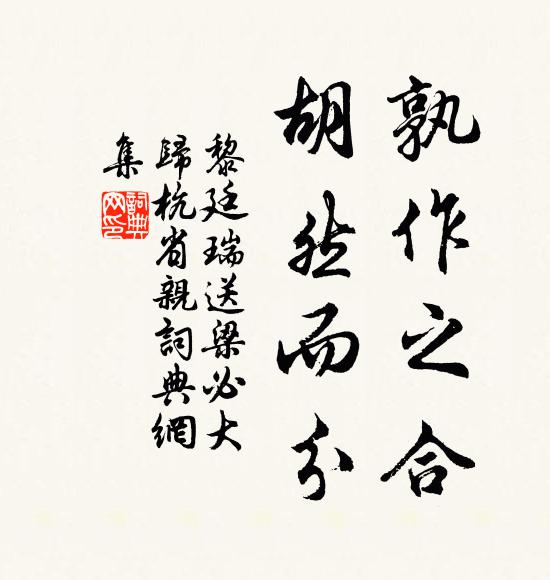 孰作之合
胡然而分
黎廷瑞送梁必大
歸杭省親詞典網
集
詞典網印